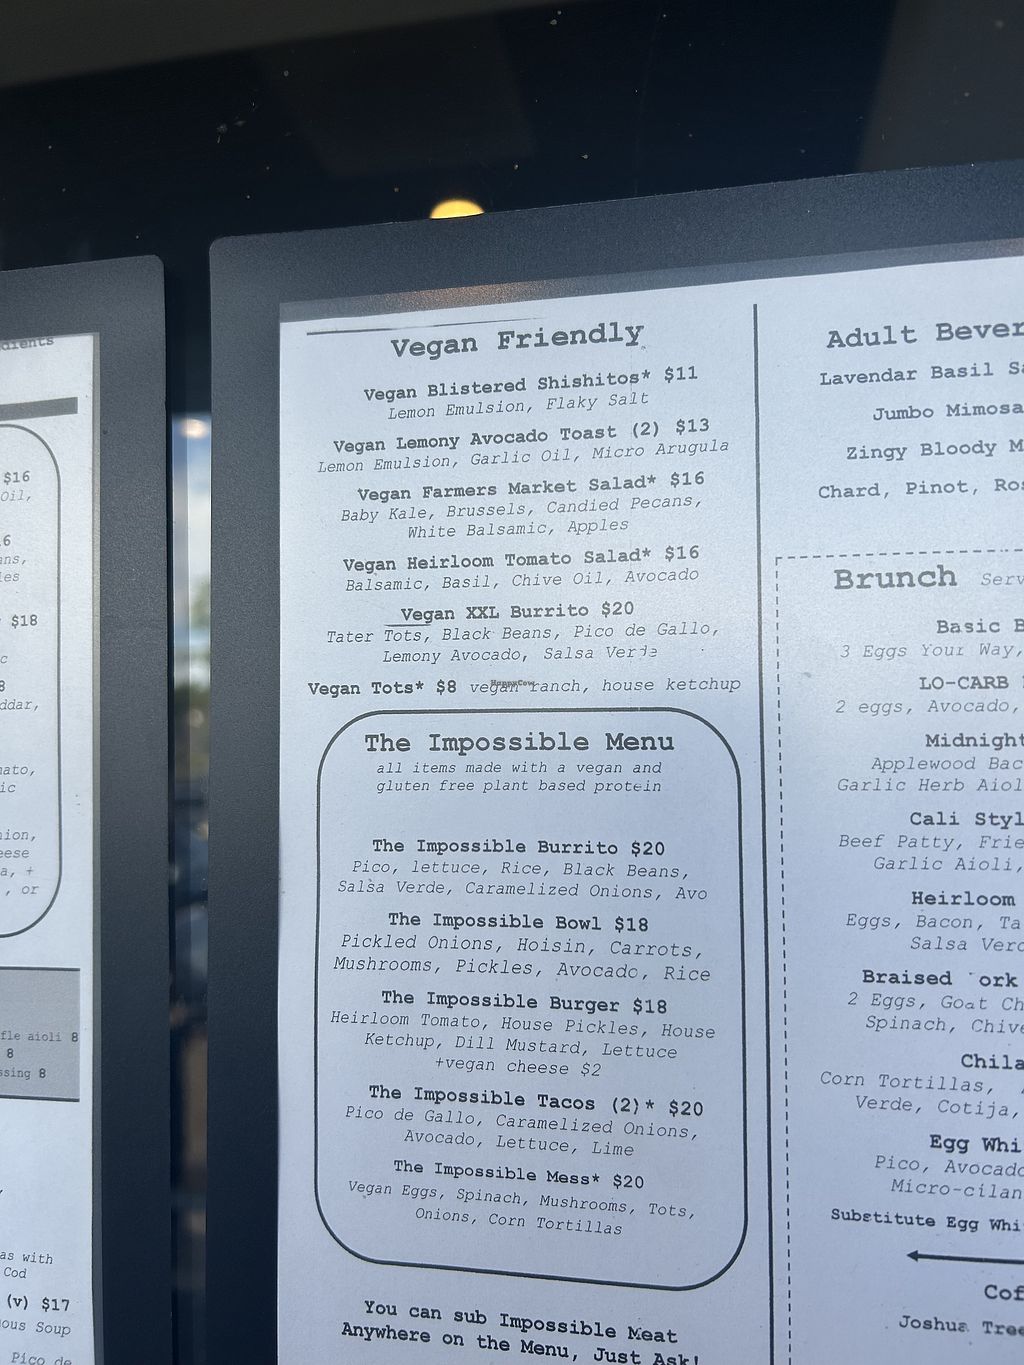 Vegan Friendly
Vegan Blistered Shishitos* $11
Lemon Emulsion, Flaky Salt
Vegan Lemony Avocado Toast (2) $13
Lemon Emulsion, Garlic Oil, Micro Arugula
Vegan Farmers Market Salad* $16
Baby Kale, Brussels, Candied Pecans,
White Balsamic, Apples
Vegan Heirloom Tomato Salad* $16
Balsamic, Basil, Chive Oil, Avocado
Vegan XXL Burrito $20
Tater Tots, Black Beans, Pico de Gallo,
Lemony Avocado, Salsa Verde
Vegan Tots* $8 vegan ranch, house ketchup
HappyCow
The Impossible Menu
all items made with a vegan and
gluten free plant based protein
The Impossible Burrito $20
Pico, lettuce, Rice, Black Beans,
Salsa Verde, Caramelized Onions, Avo
The Impossible Bowl $18
Pickled Onions, Hoisin, Carrots,
Mushrooms, Pickles, Avocado, Rice
The Impossible Burger $18
Heirloom Tomato, House Pickles, House
Ketchup, Dill Mustard, Lettuce
+vegan cheese $2
The Impossible Tacos (2)* $20
Pico de Gallo, Caramelized Onions,
Avocado, Lettuce, Lime
The Impossible Mess* $20
Vegan Eggs, Spinach, Mushrooms, Tots,
Onions, Corn Tortillas
You can sub Impossible Meat
Anywhere on the Menu, Just Ask!
Adult Bever
Lavendar Basil
Jumbo Mimosa
Zingy Bloody M
Chard, Pinot, Ros
Brunch Serv
Basic B
3 Eggs Your Way,
LO-CARB
2 eggs, Avocado,
Midnight
Applewood Bac
Garlic Herb Aiol
Cali Styl
Beef Patty, Frie
Garlic Aioli,
Heirloom
Eggs, Bacon, Ta
Salsa Verd
Braised ork
2 Eggs, Goat Ch
Spinach, Chive
Chila
Corn Tortillas,
Verde, Cotija,
Egg Whi
Pico, Avocado
Micro-cilan
Substitute Egg Whi
Cof
Joshua Tree
dients
$16
Oil,
6
ans,
les
$18
c
8
ddar,
ato,
ic
nion,
eese
a, +
, or
fle aioli 8
8
ssing 8
as with
Cod
(v) $17
ous Soup
Pico de